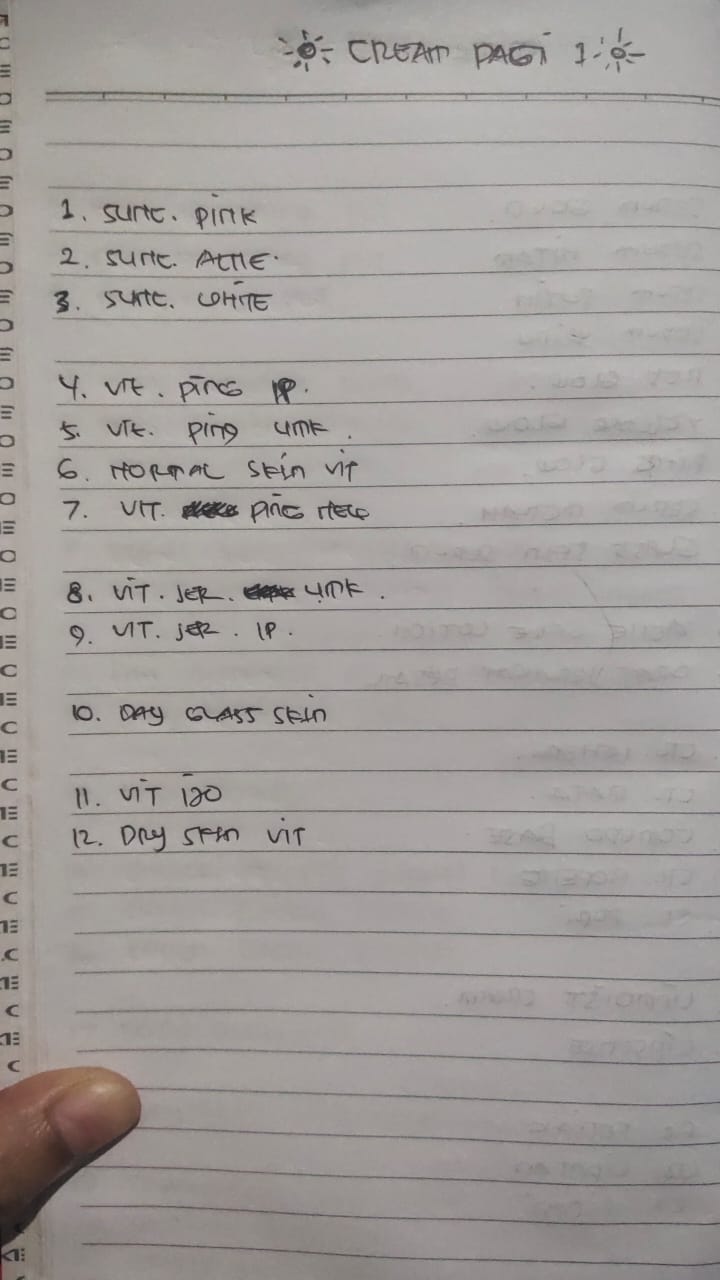 CREAM PAGI 1
1. SUNC. PINK
2. SUNC. ACNE.
3. SUNC. WHITE
4. VIT. PING IP.
5. VIT. PING UMK.
6. NORMAL SKIN VIT
7. VIT. PING
8. VIT. JER. UMK.
9. VIT. JER. IP.
10. DAY GLASS SKIN
11. VIT 120
12. DRY SKIN VIT